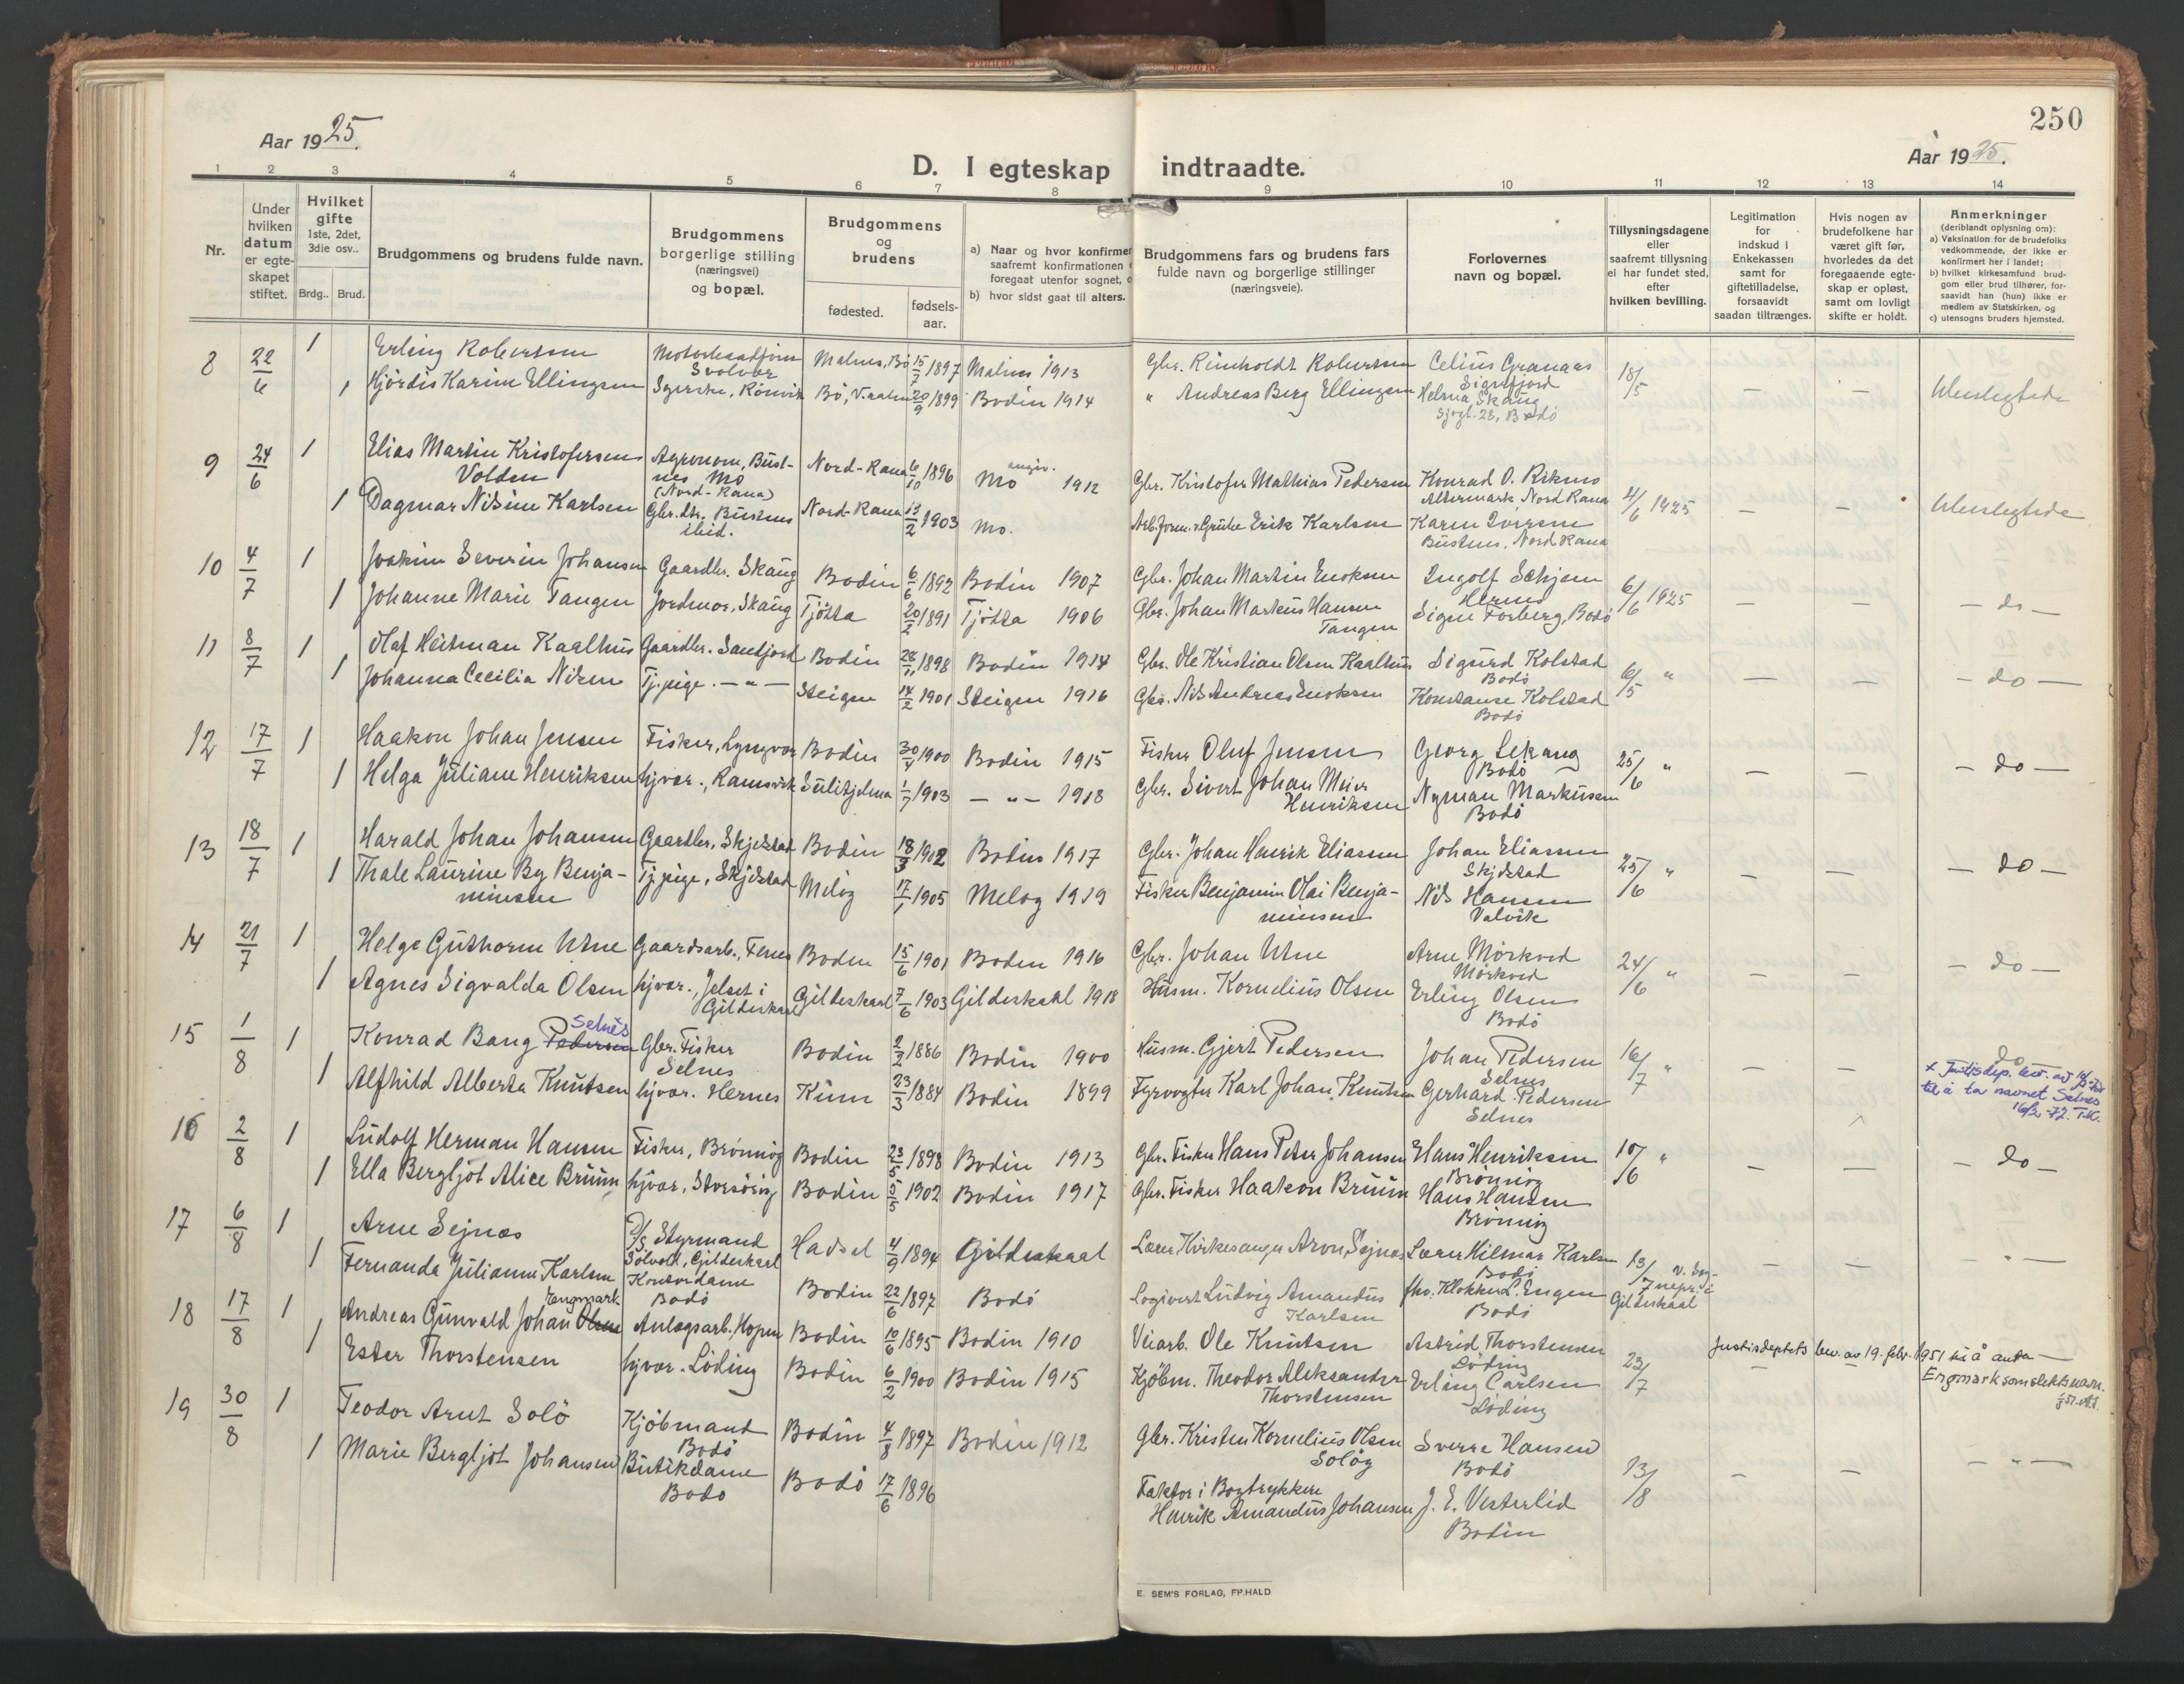 250
Aar 1925.
Aar 1925.
D. I egteskap indtraadte.
1 2 3 4 5 6 7 8 9 10 11 12 13 14
Nr.
Under hvilken datum er egteskapet stiftet.
Hvilket gifte 1ste, 2det, 3die osv..
Brdg.. Brud.
Brudgommens og brudens fulde navn.
Brudgommens borgerlige stilling (næringsvei) og bopæl.
Brudgommens og brudens
fødested. fødsels-aar.
a) Naar og hvor konfirmer
saafremt konfirmationen
foregaat utenfor sognet,
b) hvor sidst gaat til alters.
Brudgommens fars og brudens fars
fulde navn og borgerlige stillinger
(næringsveie).
Forlovernes
navn og bopæl.
Tillysningsdagene
eller
saafremt tillysning
ei har fundet sted,
efter
hvilken bevilling.
Legitimation
for
indskud i
Enkekassen
samt for
giftetilladelse,
forsaavidt
saadan tiltrænges.
Hvis nogen av
brudefolkene har
været gift før,
hvorledes da det
foregaaende egte-
skap er opløst,
samt om lovligt
skifte er holdt.
Anmerkninger
(deriblandt oplysning om):
a) Vaksination for de brudefolks
vedkommende, der ikke er
konfirmert her i landet;
b) hvilket kirkesamfund brud-
gom eller brud tilhører, for-
saavidt han (hun) ikke er
medlem av Statskirken, og
c) utensogns bruders hjemsted.
8 22/6 1 Erling Robertsen Svolvær Malnes, Bø 15/7 1897 Malnes 1913 Gbr. Reinholdt Robertsen Celius Granaas Sigerfjord 18/5 — —
1 Hjördis Karine Ellingsen Sykerske, Rönvik Bö, V.aalen 20/9 1899 Bodin 1914 " Andreas Berg Ellingsen Helma Skaug Sjøgt. 28, Bodö
9 24/6 1 Elias Martin Kristofersen Volden Agronom, Bust-nes, Mo (Nord-Rana) Nord-Rana 6/10 1896 Mo angiv. 1912 Gbr. Kristofer Mathias Pedersen Konrad O. Rikmo Altermark, Nord Rana 4/6 1925 — —
1 Dagmar Nilsine Karlsen Gbr.dtr. Bustnes ibid. Nord-Rana 13/2 1903 Mo. Arb.form. v. Grube Erik Karlsen Karen Iversen Bustnes, Nord Rana
10 4/7 1 Joakim Severin Johansen Gaardbr. Skaug Bodin 6/6 1892 Bodin 1907 Gbr. Johan Martin Enoksen Ingolf Schjem Hernes 6/6 1925 — — — do —
1 Johanne Marie Tangen Jordmor, Skaug Tjötta 20/2 1891 Tjötta 1906 Gbr. Johan Markus Hansen Tangen Signe Forberg, Bodö
11 8/7 1 Olaf Heitman Kaalhus Gaardbr. Sandjord Bodin 1898 Bodin 1914 Gbr. Ole Kristian Olsen Kaalhus Sigurd Kolstad Bodö 6/5 " — — — do —
1 Johanna Cecilia Nilsen Tj.pige. — " — Steigen 14/2 1901 Steigen 1916 Gbr. Nils Andreas Enoksen Konstanse Kolstad Bodö
12 17/7 1 Haakon Johan Jensen Fisker, Lyngvær Bodin 1900 Bodin 1915 Fisker Oluf Jensen Georg Lekang Bodö 25/6 " — — — do —
1 Helga Juliane Henriksen hjvær., Ramsvik Sulitjelma 1/7 1903 — " — 1918 Gbr. Sivert Johan Meier Henriksen Nyman Markussen Bodö
13 18/7 1 Harald Johan Johansen Gaardbr., Skjelstad Bodin 18/3 1902 Bodin 1917 Gbr. Johan Henrik Eliassen Johan Eliassen Skjelstad 25/6 " — — — do —
1 Thale Laurine By Benja-minsen Tj.pige, Skjelstad Melöy 17/1 1905 Meloy 1919 Fisker Benjamin Olai Benja-minsen Nils Hansen Valvik
14 21/7 1 Helge Guthorm Utne Gaardsarb., Fenes Boden 15/6 1901 Boden 1916 Gbr. Johan Utne Arne Mörkved Mörkved 24/6 " — — — do —
1 Agnes Sigvalda Olsen hjvær., Jelset i Gildeskaal Gildeskaal 7/6 1903 Gildeskaal 1918 Husm. Kornelius Olsen Erling Olsen Bodö
15 1/8 1 Konrad Bang Pedersen Selnes Gbr. Fisker Selnes Bodin 2/2 1886 Bodin 1900 Husm. Gjert Pedersen Johan Pedersen Selnes 16/7 " — — do
x Justisdep. bev. av
til å ta navnet Selnes
16/2-72. T.K.
1 Alfhild Alberta Knutsen hjvær. Hernes Kinn 23/3 1884 Bodin 1899 Fyrvogter Karl Johan Knutsen Gerhard Pedersen Selnes
16 2/8 1 Ludolf Herman Hansen Fisker, Brönnöy Bodin 23/5 1898 Bodin 1913 Gbr. Fisker Hans Peter Johansen Hans Henriksen Brönnöy 10/6 " — — — do —
1 Ella Bergljot Alice Bruun hjvær, Storsöröy Bodin 5/5 1902 Bodin 1917 Gbr. Fisker Haakon Bruun Hans Hansen Brönnöy
17 6/8 1 Arne Sejnæs D/S Styrmand Sölvold, Gildeskaal Hadsel 4/9 1894 Gildeskaal Lærer, Kirkesanger Aron Sejnæs Lærer Hilmar Karlsen Bodö 13/7 Gildeskaal — — — " —
1 Fernanda Julianne Karlsen Kontordame Bodö Bodin 22/6 1897 Bodö Logivert Ludvig Amandus Karlsen fhv. Klokker L. Engen Bodö
18 17/8 1 Andreas Gunvald Johan Olsen Engmark Anlegsarb., Hopen Bodin 10/6 1895 Bodin 1910 Veiarb. Ole Knutsen Astrid Thorstensen Löding 23/7
Justisdeptets bev. av 19. febr. 1951 til å anta
Engmark som slektsnavn.
1 Ester Thorstensen hjvær. Löding Bodin 6/2 1900 Bodin 1915 Kjöbm. Theodor Aleksander Thorstensen Erling Carlsen Löding
19 30/8 1 Teodor Arnt Solö Kjöbmand Bodö Bodin 4/8 1897 Bodin 1912 Gbr. Kristen Kornelius Olsen Solöy Sverre Hansen Bodö 13/8 — — — " —
1 Marie Bergljot Johansen Butikdame Bodö Bodö 17/6 1896 Faktor i Bogtrykkeri Henrik Amandus Johansen J. E. Vesterlid Bodin
E. SEM'S FORLAG, FR.HALD